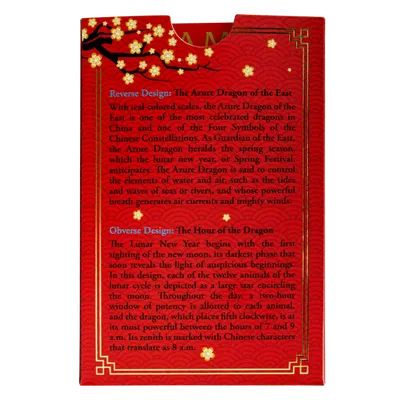 AM
Reverse Design: The Azure Dragon of the East
With teal-colored scales, the Azure Dragon of the
East is one of the most celebrated dragons in
China and one of the Four Symbols of the
Chinese Constellations. As Guardian of the East,
the Azure Dragon heralds the spring season,
which the lunar new year, or Spring Festival,
anticipates. The Azure Dragon is said to control
the elements of water and air, such as the tides
and waves of seas or rivers, and whose powerful
breath generates air currents and mighty winds.
Obverse Design: The Hour of the Dragon
The Lunar New Year begins with the first
sighting of the new moon, its darkest phase that
soon reveals the light of auspicious beginnings.
In this design, each of the twelve animals of the
lunar cycle is depicted as a large star encircling
the moon. Throughout the day, a two-hour
window of potency is allotted to each animal,
and the dragon, which places fifth clockwise, is at
its most powerful between the hours of 7 and 9
a.m. Its zenith is marked with Chinese characters
that translate as 8 a.m.